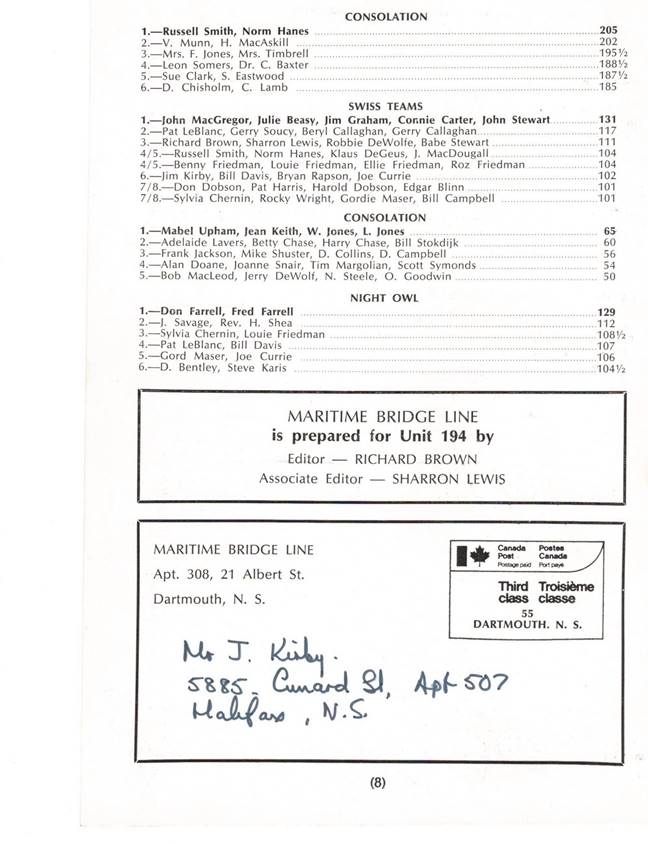 CONSOLATION
1.—Russell Smith, Norm Hanes ........ 205
2.—V. Munn, H. MacAskill ........ 202
3.—Mrs. F. Jones, Mrs. Timbrell ........ 195½
4.—Leon Somers, Dr. C. Baxter ........ 188½
5.—Sue Clark, S. Eastwood ........ 187½
6.—D. Chisholm, C. Lamb ........ 185
SWISS TEAMS
1.—John MacGregor, Julie Beasy, Jim Graham, Connie Carter, John Stewart ........ 131
2.—Pat LeBlanc, Gerry Soucy, Beryl Callaghan, Gerry Callaghan ........ 117
3.—Richard Brown, Sharron Lewis, Robbie DeWolfe, Babe Stewart ........ 111
4/5.—Russell Smith, Norm Hanes, Klaus DeGeus, J. MacDougall ........ 104
4/5.—Benny Friedman, Louie Friedman, Ellie Friedman, Roz Friedman ........ 104
6.—Jim Kirby, Bill Davis, Bryan Rapson, Joe Currie ........ 102
7/8.—Don Dobson, Pat Harris, Harold Dobson, Edgar Blinn ........ 101
7/8.—Sylvia Chernin, Rocky Wright, Gordie Maser, Bill Campbell ........ 101
CONSOLATION
1.—Mabel Upham, Jean Keith, W. Jones, L. Jones ........ 65
2.—Adelaide Lavers, Betty Chase, Harry Chase, Bill Stokdijk ........ 60
3.—Frank Jackson, Mike Shuster, D. Collins, D. Campbell ........ 56
4.—Alan Doane, Joanne Snair, Tim Margolian, Scott Symonds ........ 54
5.—Bob MacLeod, Jerry DeWolf, N. Steele, O. Goodwin ........ 50
NIGHT OWL
1.—Don Farrell, Fred Farrell ........ 129
2.—J. Savage, Rev. H. Shea ........ 112
3.—Sylvia Chernin, Louie Friedman ........ 108½
4.—Pat LeBlanc, Bill Davis ........ 107
5.—Gord Maser, Joe Currie ........ 106
6.—D. Bentley, Steve Karis ........ 104½
MARITIME BRIDGE LINE
is prepared for Unit 194 by
Editor — RICHARD BROWN
Associate Editor — SHARRON LEWIS
MARITIME BRIDGE LINE
Apt. 308, 21 Albert St.
Dartmouth, N. S.
Canada Postes
Post Canada
Postage paid Port payé
Third Troisième
class classe
55
DARTMOUTH. N. S.
Mr J. Kirby.
5885 - Cunard St, Apt 507
Halifax, N.S.
(8)